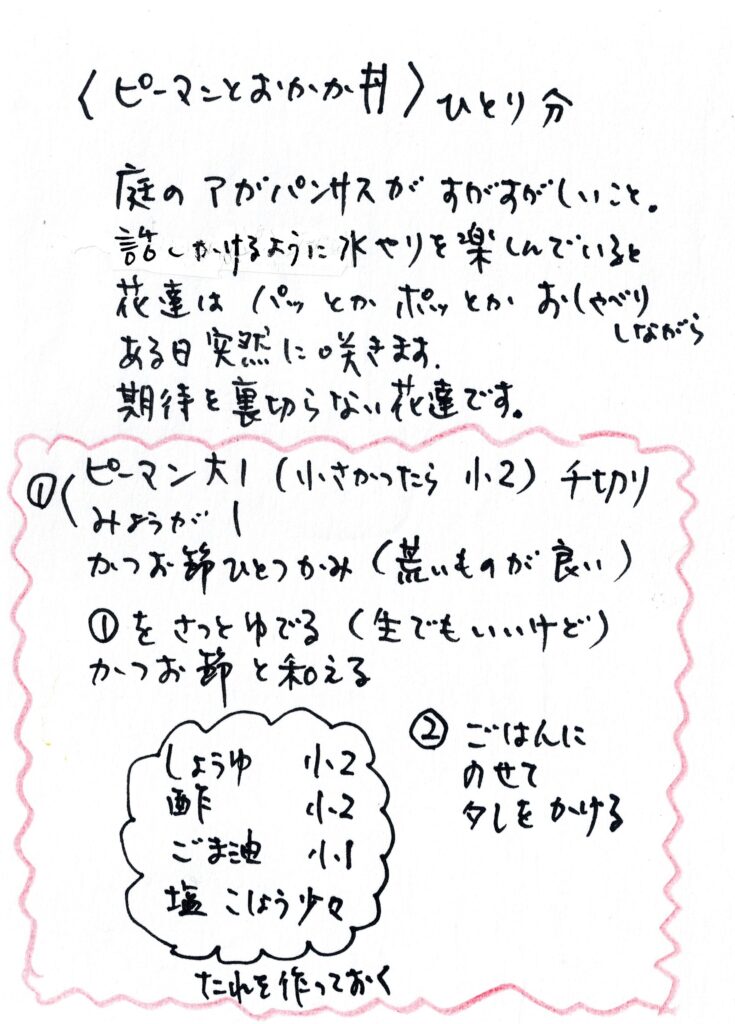 〈ピーマンとおかか丼〉ひとり分
庭のアガパンサスがすがすがしいこと。
話しかけるように水やりを楽しんでいると
花達はパッとかポッとかおしゃべり
しながら
ある日突然に咲きます.
期待を裏切らない花達です。
①(ピーマン大1(小さかったら小2)千切り
みょうが1
かつお節ひとつかみ(荒いものが良い)
①をさっとゆでる(生でもいいけど)
かつお節と和える
しょうゆ 小2
酢 小2
ごま油 小1
塩こしょう少々
たれを作っておく
②ごはんに
のせて
タレをかける